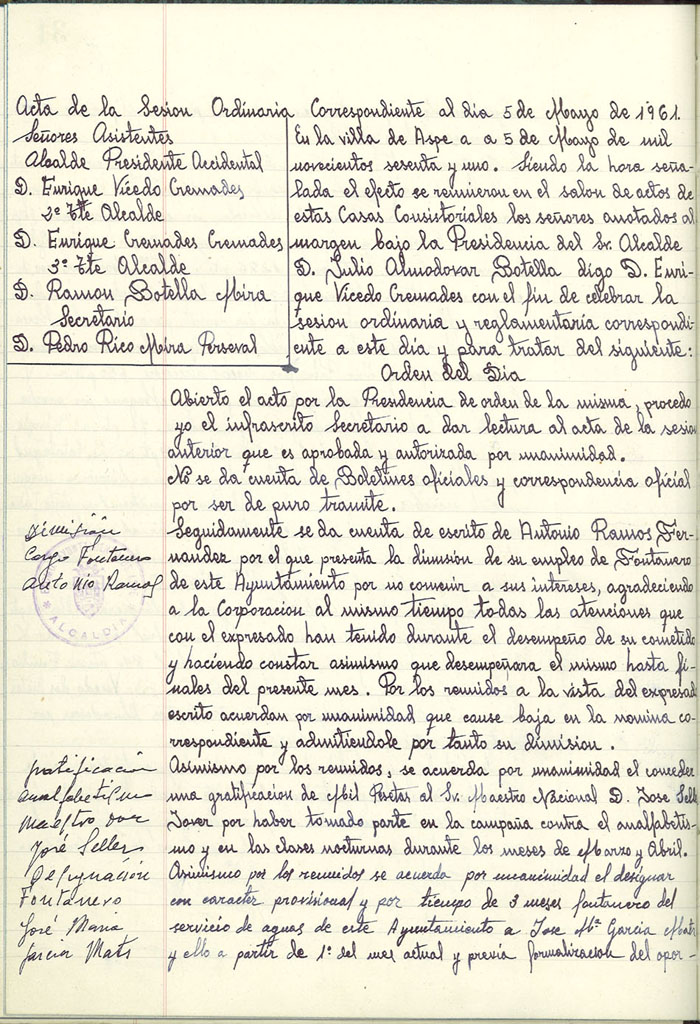 Acta de la Sesion Ordinaria Correspondiente al dia 5 de Mayo de 1961.
Señores Asistentes
Alcalde Presidente Accidental
D. Enrique Vicedo Cremades
2º Tte Alcalde
D. Enrique Cremades Cremades
3º Tte Alcalde
D. Ramon Botella Mira
Secretario
D. Pedro Rico Moira Perseval
En la villa de Aspe a a 5 de Mayo de mil
novecientos sesenta y uno. Siendo la hora seña-
lada el efecto se reunieron en el salon de actos de
estas Casas Consistoriales los señores anotados al
margen bajo la Presidencia del Sr. Alcalde
D. Julio Almodovar Botella digo D. Enri-
que Vicedo Cremades con el fin de celebrar la
sesion ordinaria y reglamentaria correspondi-
ente a este día y para tratar del siguiente:
Orden del Dia
Abierto el acto por la Presidencia de orden de la misma, procedo
yo el infrascrito Secretario a dar lectura al acta de la sesion
anterior que es aprobada y autorizada por unanimidad.
No se da cuenta de Boletines oficiales y correspondencia oficial
por ser de puro tramite.
Dimisión
Cargo Fontanero
Antonio Ramos
ALCALDIA
Seguidamente se da cuenta de escrito de Antonio Ramos Fer-
nandez por el que presenta la dimision de su empleo de Fontanero
de este Ayuntamiento por no convenir a sus intereses, agradeciendo
a la Corporacion al mismo tiempo todas las atenciones que
con el expresado han tenido durante el desempeño de su cometido
y haciendo constar asimismo que desempeñara el mismo hasta fi-
nales del presente mes. Por los reunidos a la vista del expresado
escrito acuerdan por unanimidad que cause baja en la nomina co-
rrespondiente y admitiendole por tanto su dimision.
gratificación
analfabetismo
maestro don
José Seller
Asimismo por los reunidos, se acuerda por unanimidad el conceder
una gratificacion de Mil Pesetas al Sr. Maestro Nacional D. Jose Seller
Jover por haber tomado parte en la campaña contra el analfabetis-
mo y en las clases nocturnas durante los meses de Marzo y Abril.
Designación
Fontanero
José Maria
Garcia Mats
Asimismo por los reunidos se acuerda por unanimidad el designar
con caracter provisional y por tiempo de 3 meses fontanero del
servicio de aguas de este Ayuntamiento a Jose Mª Garcia
y ello a partir de 1º del mes actual y previa formalizacion del opor-